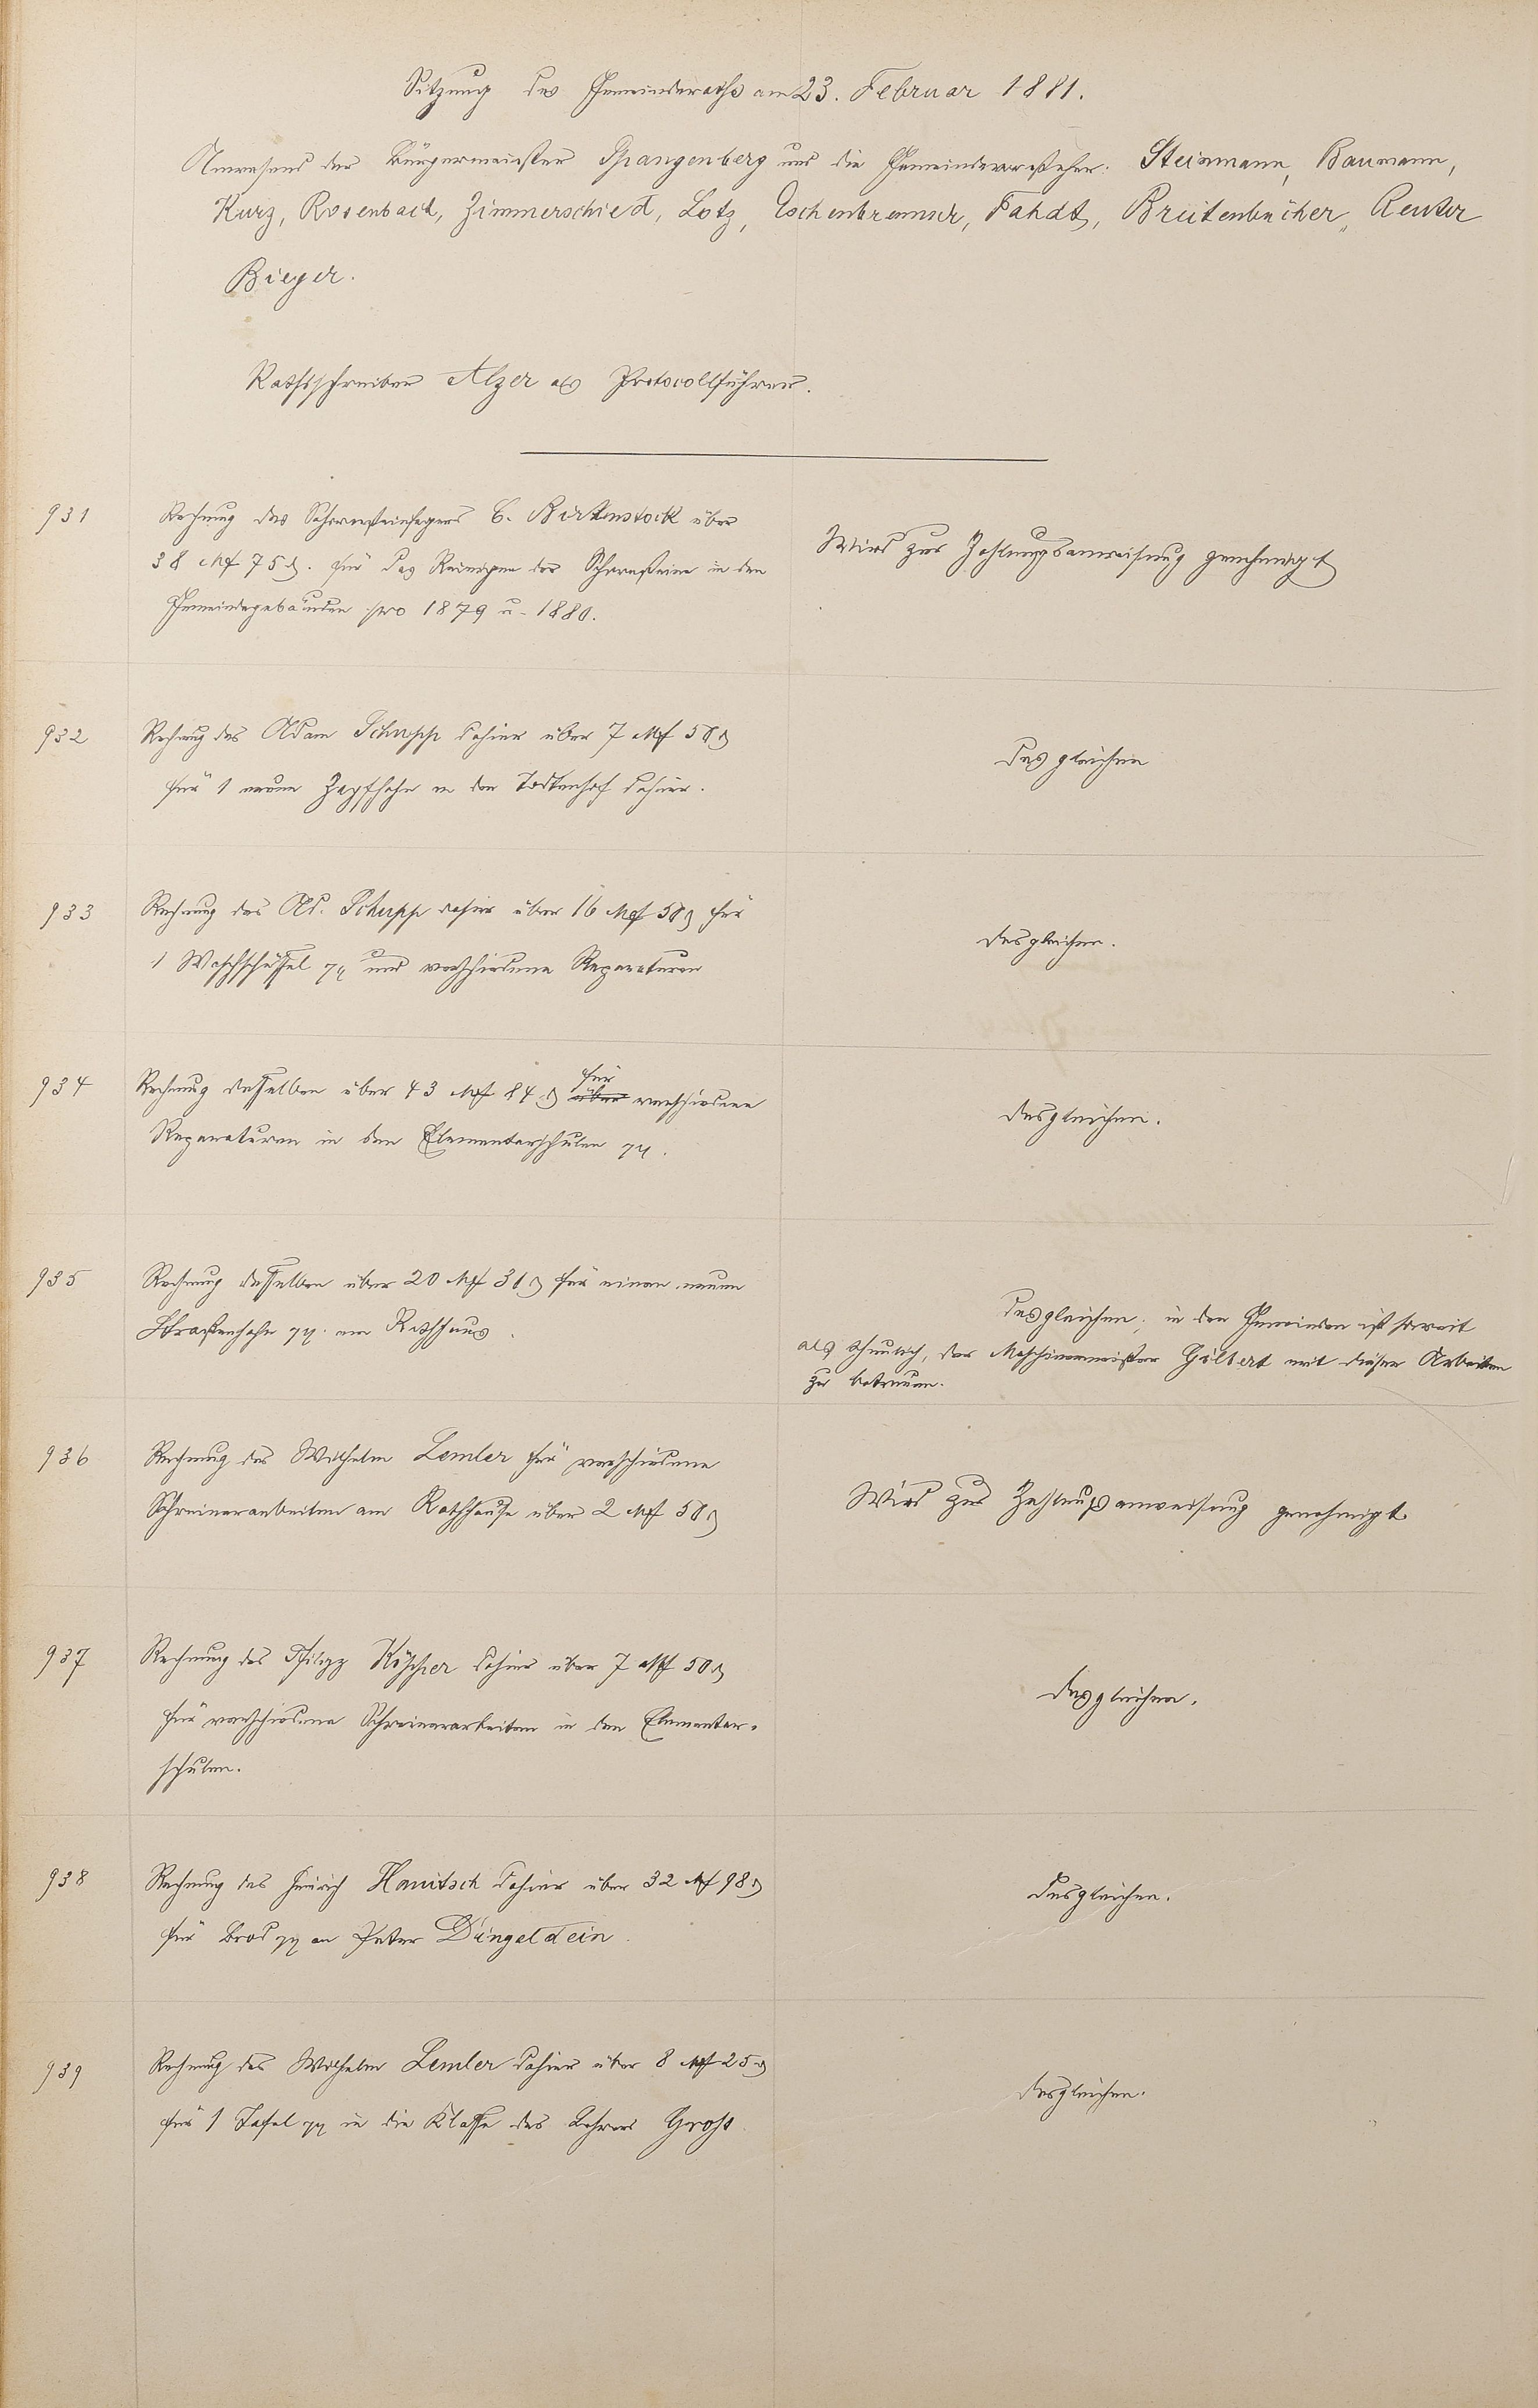 Sitzung des Gemeinderaths am 23. Februar 1881.
Anwesend der Bürgermeister Spangenberg und die Gemeindevorsteher: Steinmann, Baumann,
Kurz, Rosenbach, Zimmerschied, Lotz, Eschenbrenner, Fahdt, Breitenbücher, Reuter
Bieger.
Rathsschreiber Alzer als Protocollführer.
931
Rechnung des Schornsteinfegers C. Birkenstock über
38 Mk 75 ₰. für das Reinigen der Schornsteine in den
Gemeindegebäuden pro 1879 u. 1880.
Wird zur Zahlungsanweisung genehmigt
932
Rechnung des Adam Schupp dahier über 7 Mk 50 ₰
für 1 neuen Zapfhahn in den Todtenhof dahier.
desgleichen
933
Rechnung des Ad. Schupp dahier über 16 Mk 50 ₰ für
1 Waschschüssel pp und verschiedene Reparaturen
desgleichen.
934
Rechnung desselben über 43 Mk 84 ₰ über für verschiedene
Reparaturen in den Elementarschulen pp.
desgleichen.
935
Rechnung desselben über 20 Mk 31 ₰ für einen neuen
Straßenhahn pp. am Rathhaus.
desgleichen; in den Gemeinden ist soweit
als thunlich, der Maschinenmeister Gilbert mit diesen Arbeiten
zu betrauen.
936
Rechnung des Wilhelm Lemler für verschiedene
Schreinerarbeiten am Rathhause über 2 Mk 50 ₰
Wird zur Zahlungsanweisung genehmigt.
937
Rechnung des Philipp Köscher dahier über 7 Mk 50 ₰
für verschiedene Schreinerarbeiten in den Elementar-
schulen.
desgleichen.
938
Rechnung des Heinrich Hanitsch dahier über 32 Mk 98 ₰
für Brod pp an Peter Dingeldein.
desgleichen.
939
Rechnung des Wilhelm Lemler dahier über 8 Mk 25 ₰
für 1 Tafel pp in die Klasse des Lehrers Groß.
desgleichen.